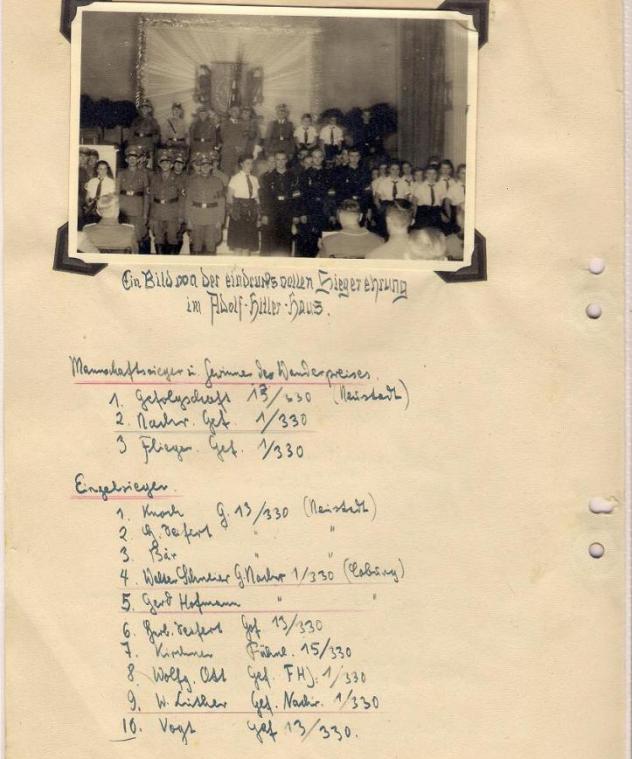 Ein Bild von der eindrucksvollen Siegerehrung
im Adolf-Hitler-Haus.
Mannschaftssieger u. Gewinner des Wanderpreises.
1. Gefolgschaft 13/330 (Neustadt)
2. Nachr. Gef. 1/330
3 Flieger. Gef. 1/330
Einzelsieger.
1. Knoch G. 13/330 (Neustadt)
2 Seifert " "
3. Bär " "
4. Walter Schneier G. Nachr 1/330 (Coburg)
5. Gerd Hofmann " "
6. Herb. Seifert Gef 13/330
7. Kirchner Fähnl. 15/330
8. Wolfg. Ott Gef. FHJ. 1/330
9. W. Luther Gef. Nachr. 1/330
10. Vogt Gef 13/330.